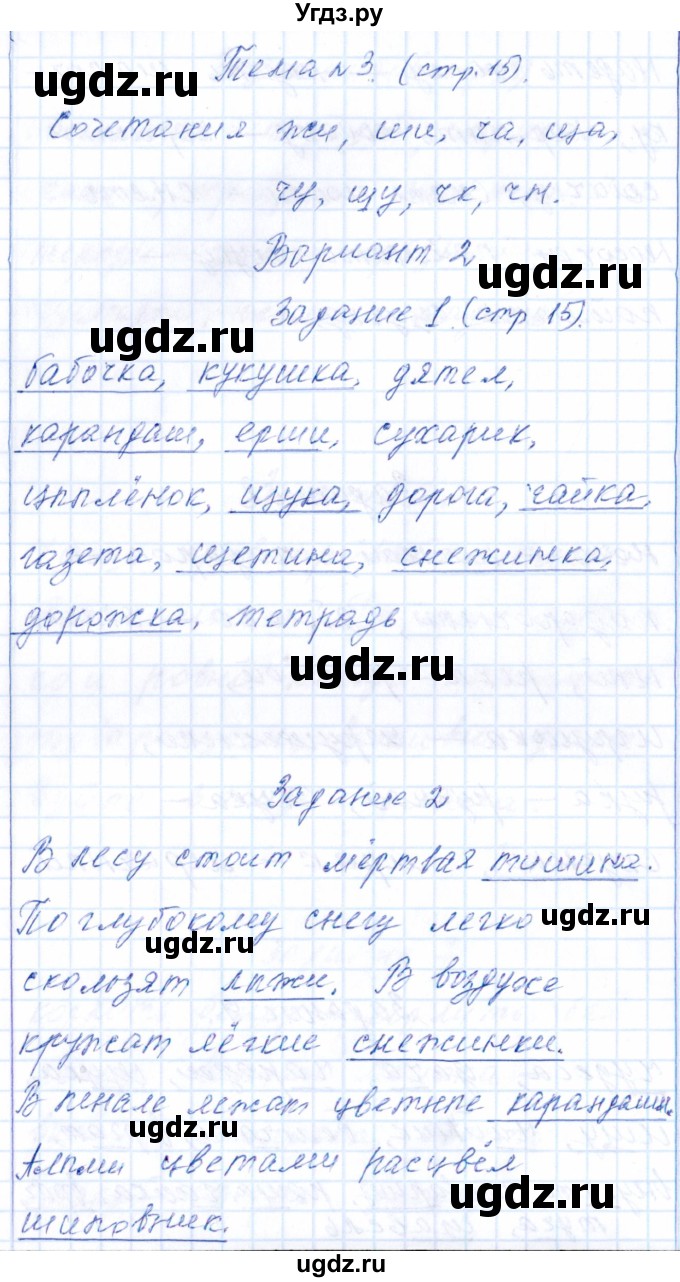 Угдз.ру
Тема №3. (стр. 15).
Сочетания жи, ши, ча, ща,
чу, щу, чк, чн.
Вариант 2
Задание 1. (стр 15).
бабочка, кукушка, дятел,
карандаш, ерши, сухарик,
цыплёнок, щука, дорога, чайка,
газета, щетина, снежинка,
дорожка, тетрадь
Задание 2
В лесу стоит мёртвая тишина.
По глубокому снегу легко
скользят лыжи. В воздухе
кружат лёгкие снежинки.
В пенале лежат цветные карандаши.
Алыми цветами расцвёл
шиповник.
ugdz.ru
ugdz.ru
ugdz.ru
ugdz.ru
ugdz.ru
ugdz.ru
ugdz.ru
ugdz.ru
ugdz.ru
ugdz.ru